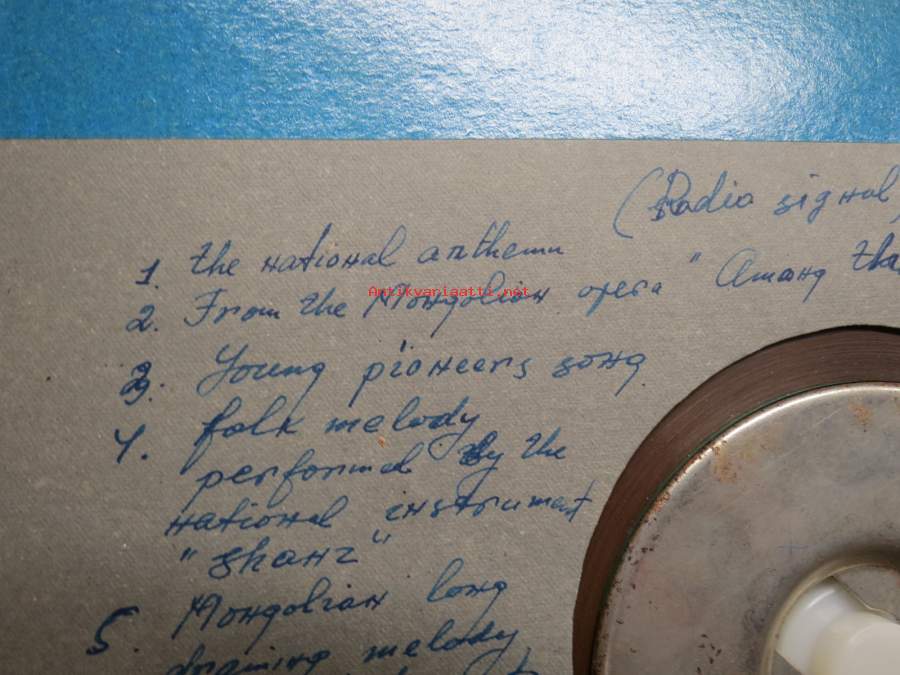 (Radio signal)
1. The national anthemn
2. From the Mongolian opera "Among tha
Antikvariaatti.net
3. Young pioneers song
4. folk melody
performed by the
national instrument
"shanz"
5. Mongolian long
melody